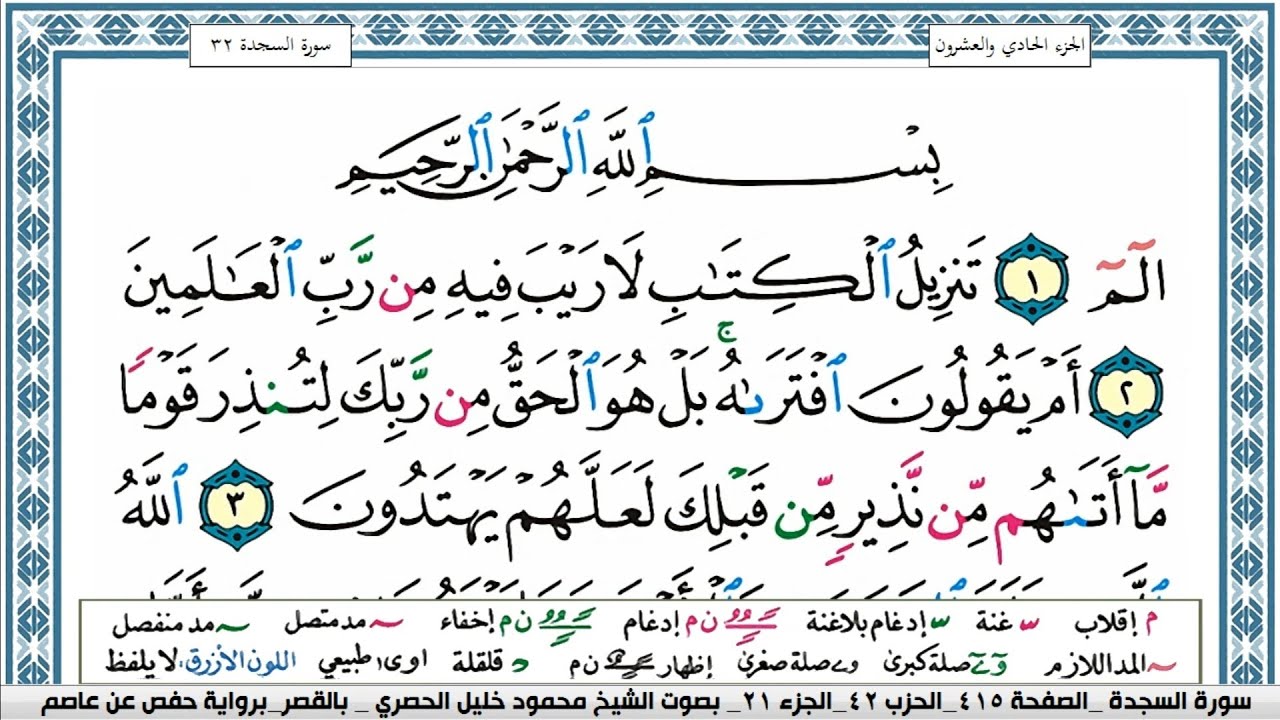 الجزء الحادي والعشرون
سورة السجدة ٣٢
بِسْمِ ٱللَّهِ ٱلرَّحْمَٰنِ ٱلرَّحِيمِ
الٓمٓ ١ تَنزِيلُ ٱلْكِتَٰبِ لَا رَيْبَ فِيهِ مِن رَّبِّ ٱلْعَٰلَمِينَ
٢ أَمْ يَقُولُونَ ٱفْتَرَىٰهُ ۚ بَلْ هُوَ ٱلْحَقُّ مِن رَّبِّكَ لِتُنذِرَ قَوْمًا
مَّآ أَتَىٰهُم مِّن نَّذِيرٍ مِّن قَبْلِكَ لَعَلَّهُمْ يَهْتَدُونَ ٣ ٱللَّهُ
م إقلاب ~ غنة ~ إدغام بلاغنة ن م إدغام ن م إخفاء ~ مد متصل ~ مد منفصل
~ المد اللازم وے صلة كبرى وے صلة صغرى إظهار ن م قلقلة اوى طبيعي اللون الأزرق، لا يلفظ
سورة السجدة _الصفحة ٤١٥_الحزب ٤٢_الجزء ٢١_ بصوت الشيخ محمود خليل الحصري _ بالقصر_برواية حفص عن عاصم